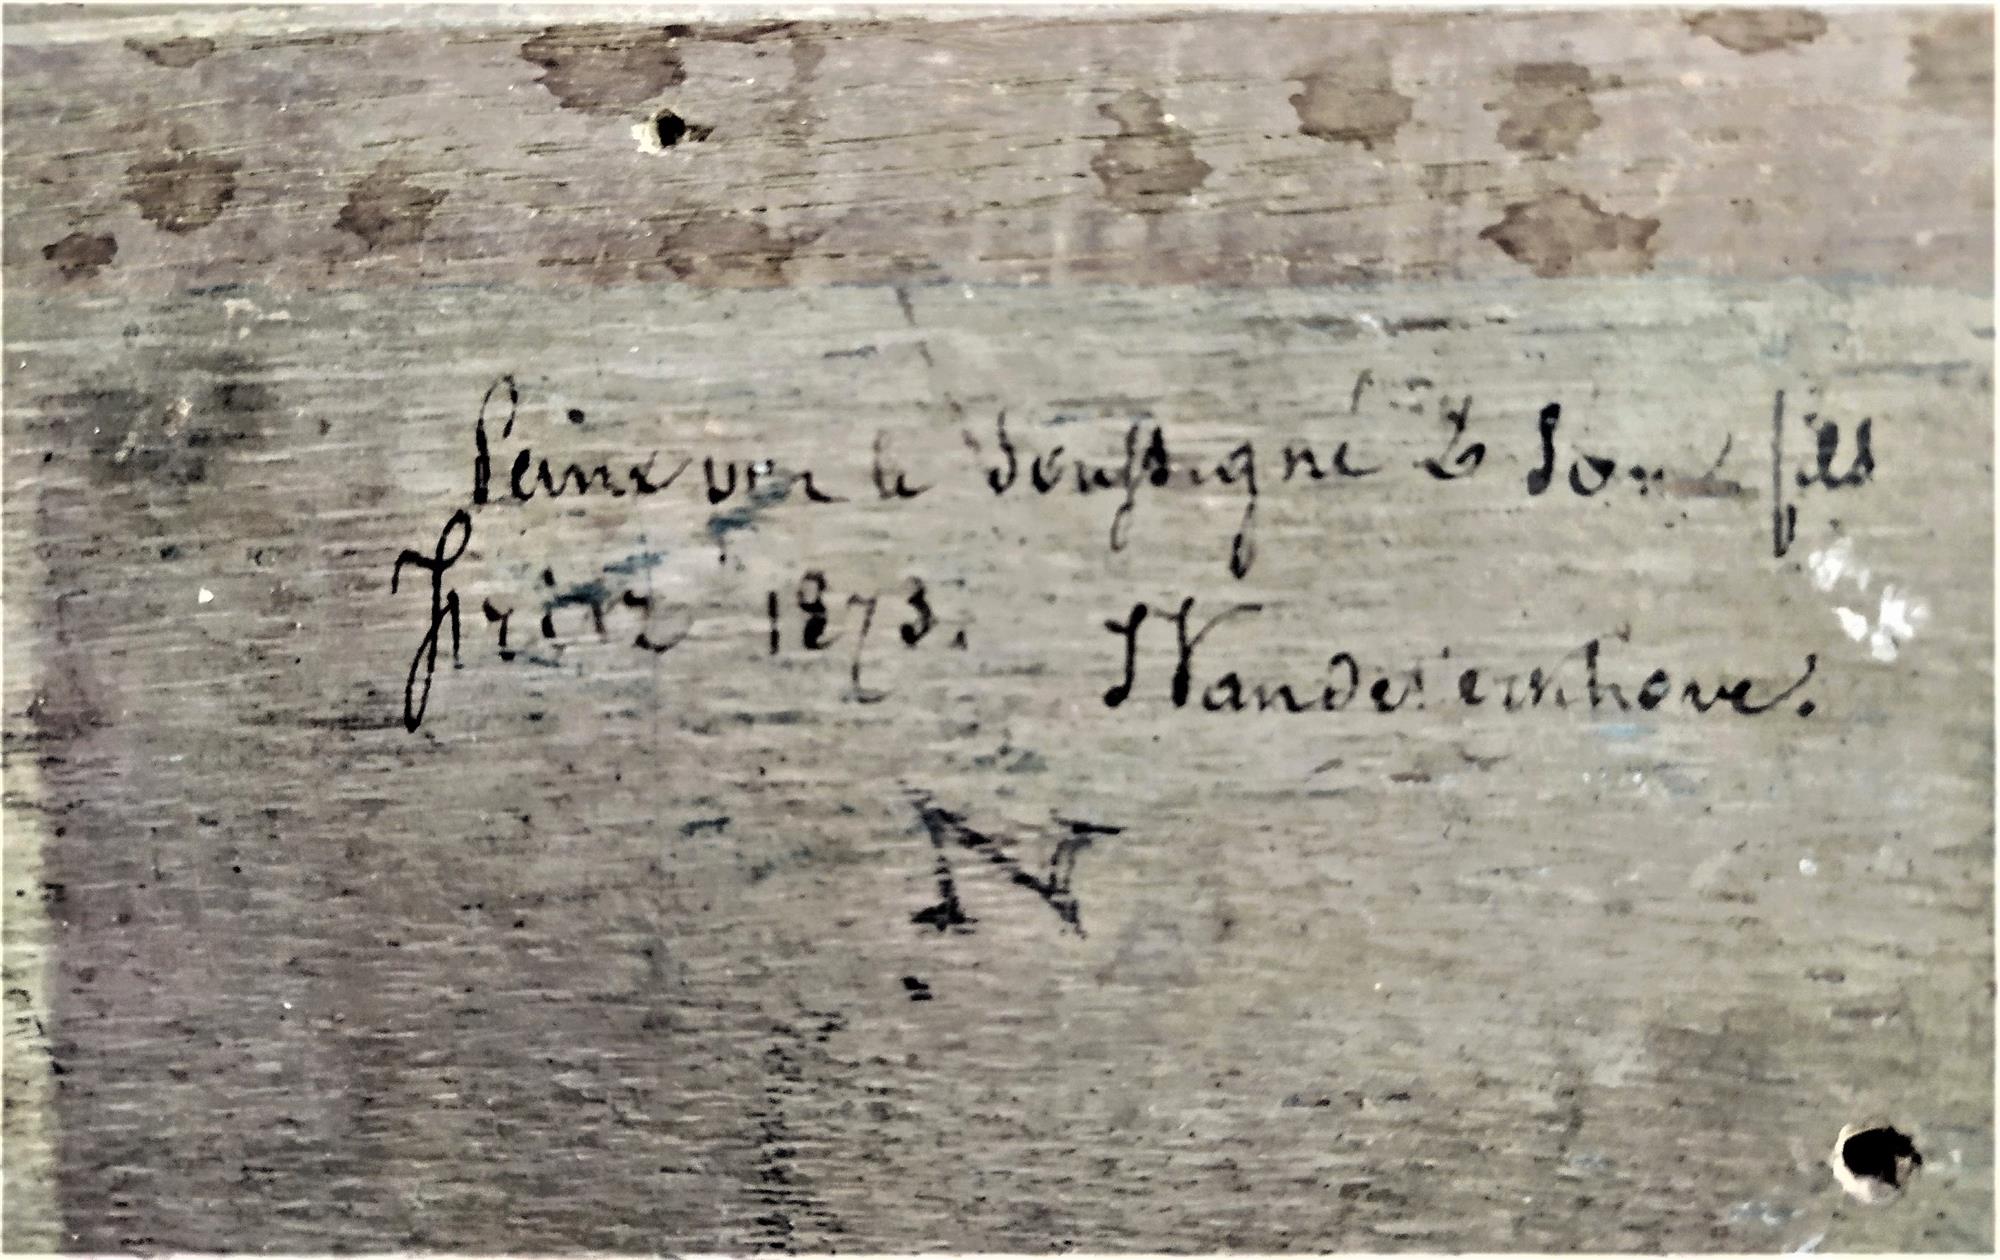 Peint par le soussigné & son fils
Fritz 1873. Vanderkerkhove.
N